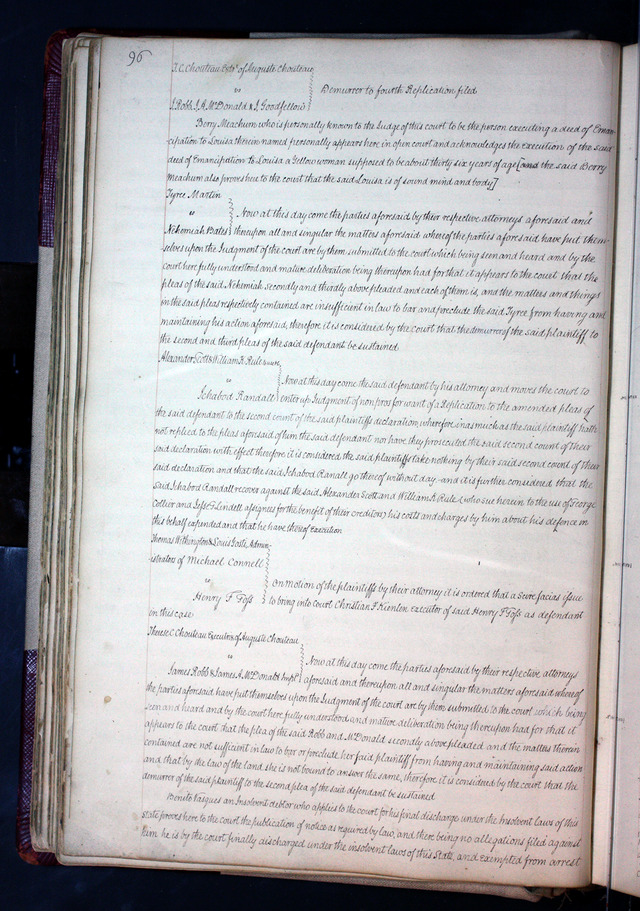 96
T. C. Chouteau Extrx of Auguste Chouteau
vs
J Robb J. A. McDonald & J. Goodfellow
Demurrer to fourth Replication filed
Berry Meachum who is personally known to the Judge of this court to be the person executing a deed of Eman-
cipation to Louisa therein named personally appears here in open court and acknowledges the execution of the said
deed of Emancipation to Louisa a Yellow woman supposed to be about thirty six years of age [and the said Berry
Meachum also proves here to the court that the said Louisa is of sound mind and body]
Tyree Martin
vs
Nehemiah Bates
Now at this day come the parties aforesaid by their respective attorneys aforesaid and
thereupon all and singular the matters aforesaid whereof the parties aforesaid have put them-
selves upon the Judgment of the court are by them submitted to the court which being seen and heard and by the
court here fully understood and mature deliberation being thereupon had for that it appears to the court that the
pleas of the said Nehemiah secondly and thirdly above pleaded and each of them is, and the matters and things
in the said pleas respectively contained are insufficient in law to bar and preclude the said Tyree from having and
maintaining his action aforesaid, therefore it is considered by the court that the demurrer of the said plaintiff to
the second and third pleas of the said defendant be sustained
Alexander Scott & William K Rule
vs
Ichabod Randall
Now at this day come the said defendant by his attorney and moves the court to
enter up Judgment of non pros for want of a Replication to the amended pleas of
the said defendant to the second count of the said plaintiffs declaration, wherefore inasmuch as the said plaintiff hath
not replied to the pleas aforesaid of him the said defendant nor have they prosecuted the said second count of their
said declaration with effect therefore it is considered the said plaintiffs take nothing by their said second count of their
said declaration and that the said Ichabod Ranall go thereof without day - and it is further considered that the
said Ichabod Randall recover against the said Alexander Scott and William K Rule (who sue herein to the use of George
Collier and Jesse G Lindell assignees for the benefit of their creditors) his costs and charges by him about his defence in
this behalf expended and that he have thereof Execution
Thomas Withington & Louis Admin-
istrators of Michael Connell
vs
Henry F Foss
On motion of the plaintiffs by their attorney it is ordered that a Scire facias issue
to bring into Court Christian F Kienlen executor of said Henry F Foss as defendant
in this case
Therese C Chouteau Executrx of Auguste Chouteau
vs
James Robb & James A McDonald
Now at this day come the parties aforesaid by their respective attorneys
aforesaid and thereupon all and singular the matters aforsaid whereof
the parties aforesaid have put themselves upon the Judgment of the court are by them submitted to the court which being
seen and heard and by the court here fully understood and mature deliberation being thereupon had for that it
appears to the court that the plea of the said Robb and McDonald secondly above pleaded and the matters therein
contained are not sufficient in law to bar or preclude her said plaintiff from having and maintaining said action
and that by the law of the land she is not bound to answer the same, therefore it is considered by the court that the
demurrer of the said plaintiff to the second plea of the said defendant be sustained
Benito Vasques an Insolvent debtor who applies to the court for his final discharge under the Insolvent laws of this
state proves here to the court the publication of notice as required by law, and there being no allegations filed against
him he is by the court finally discharged under the insolvent laws of this State, and exempted from arrest